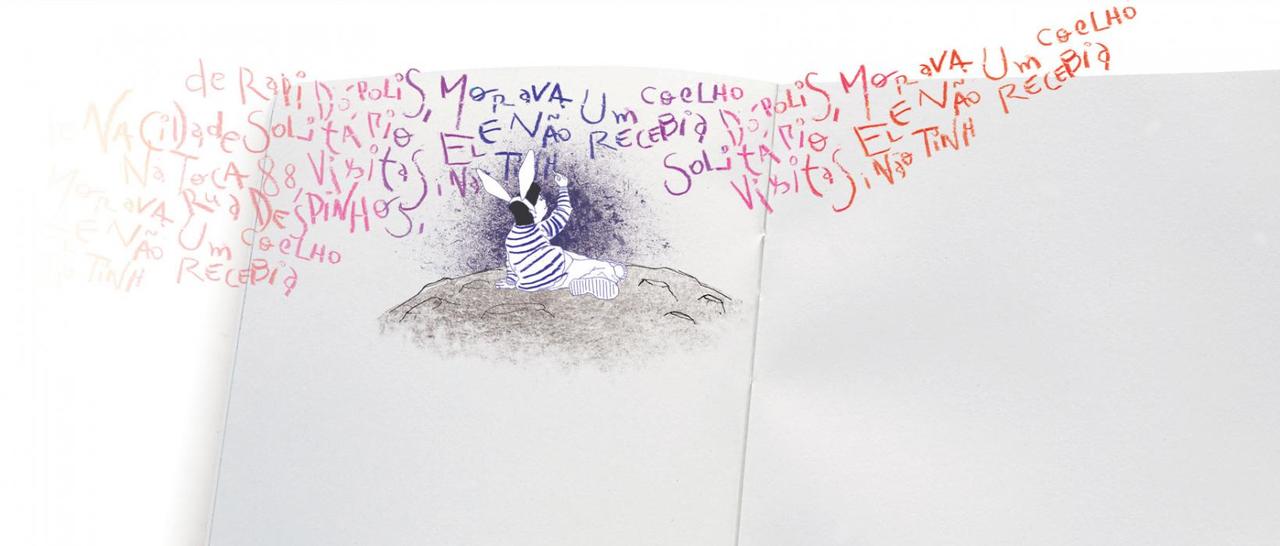 de RaPiDóPoLiS, MoRaVA Um CoeLHo
NA CidadeSoLitáRio ELE NÃo RECEBia
Na TocA 88, ViSitaS, Não TiNH
MoRaVA RuA DeSPiNHoS,
E NÃo Um CoeLHo
TiNH RECEBia
DóPoLiS, MoRaVA Um CoeLHo
SoLitáRio ELE NÃo RECEBia
ViSitaS, Não TiNH